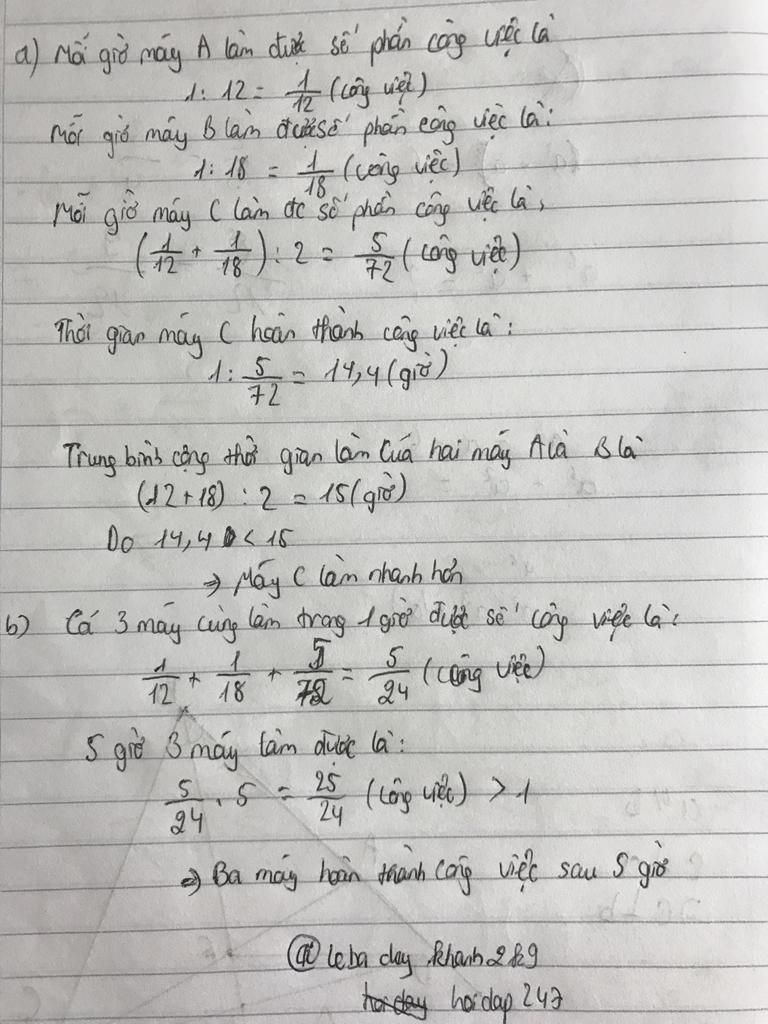 a) Mỗi giờ máy A làm được số phần công việc là
1 : 12 = 1/12 (công việc)
Mỗi giờ máy B làm được số phần công việc là:
1 : 18 = 1/18 (công việc)
Mỗi giờ máy C làm đc số phần công việc là,
(1/12 + 1/18) : 2 = 5/72 (công việc)
Thời gian máy C hoàn thành công việc là:
1 : 5/72 = 14,4 (giờ)
Trung bình cộng thời gian làm của hai máy A là B là
(12+18) : 2 = 15 (giờ)
Do 14,4 < 15
⇒ Máy C làm nhanh hơn
b) Cả 3 máy cùng làm trong 1 giờ được số công việc là:
1/12 + 1/18 + 5/72 = 5/24 (công việc)
5 giờ 3 máy làm được là:
5/24 . 5 = 25/24 (công việc) > 1
⇒ Ba máy hoàn thành công việc sau 5 giờ
leba day khanh 2k9
hoidap 247